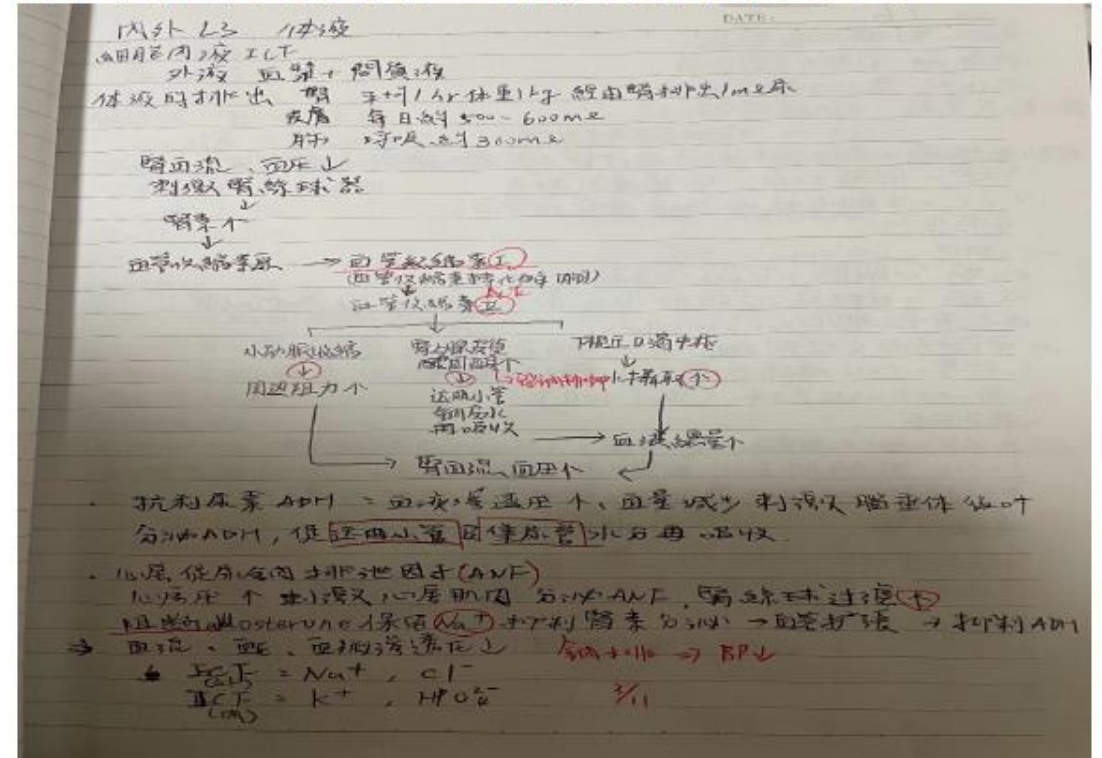 DATE:
內外 L3 体液
細胞內液 ICF
外液 血漿+間質液
体液的排出 腎 平均1hr体重1kg 經由腎排出1ml尿
皮膚 每日約500-600ml
肺 呼吸約300ml
腎血流、血压↓
刺激腎絲球器
↓
腎素↑
↓
血管收縮素原 → 血管收縮素(I)
(血管收縮素轉化酶 肺)
血管收縮素(II)
小動脈收縮 腎上腺皮質 下視丘口渴中枢
醛固酮↑
↓ ↓ ↓
周邊阻力↑ 水攝取↑
遠曲小管
鈉及水
再吸收 → 血液總量↑
→ 腎血流、血压↑ ←
· 抗利尿素 ADH = 血液滲透压↑、血量減少刺激腦垂体後叶
分泌ADH,促遠曲小管因集尿管水分再吸收
· 心房促尿鈉排泄因子(ANF)
心房压↑刺激心房肌肉分泌ANF,腎絲球过濾↑
阻斷aldosterone保留Na⁺抑制腎素分泌→血管扩張→抑制ADH
⇒ 血流、血压、血漿滲透压↓
⇒ BP↓
ECF = Na⁺, cl⁻
ICF = K⁺, HPO₄²⁻
(內)
3/11